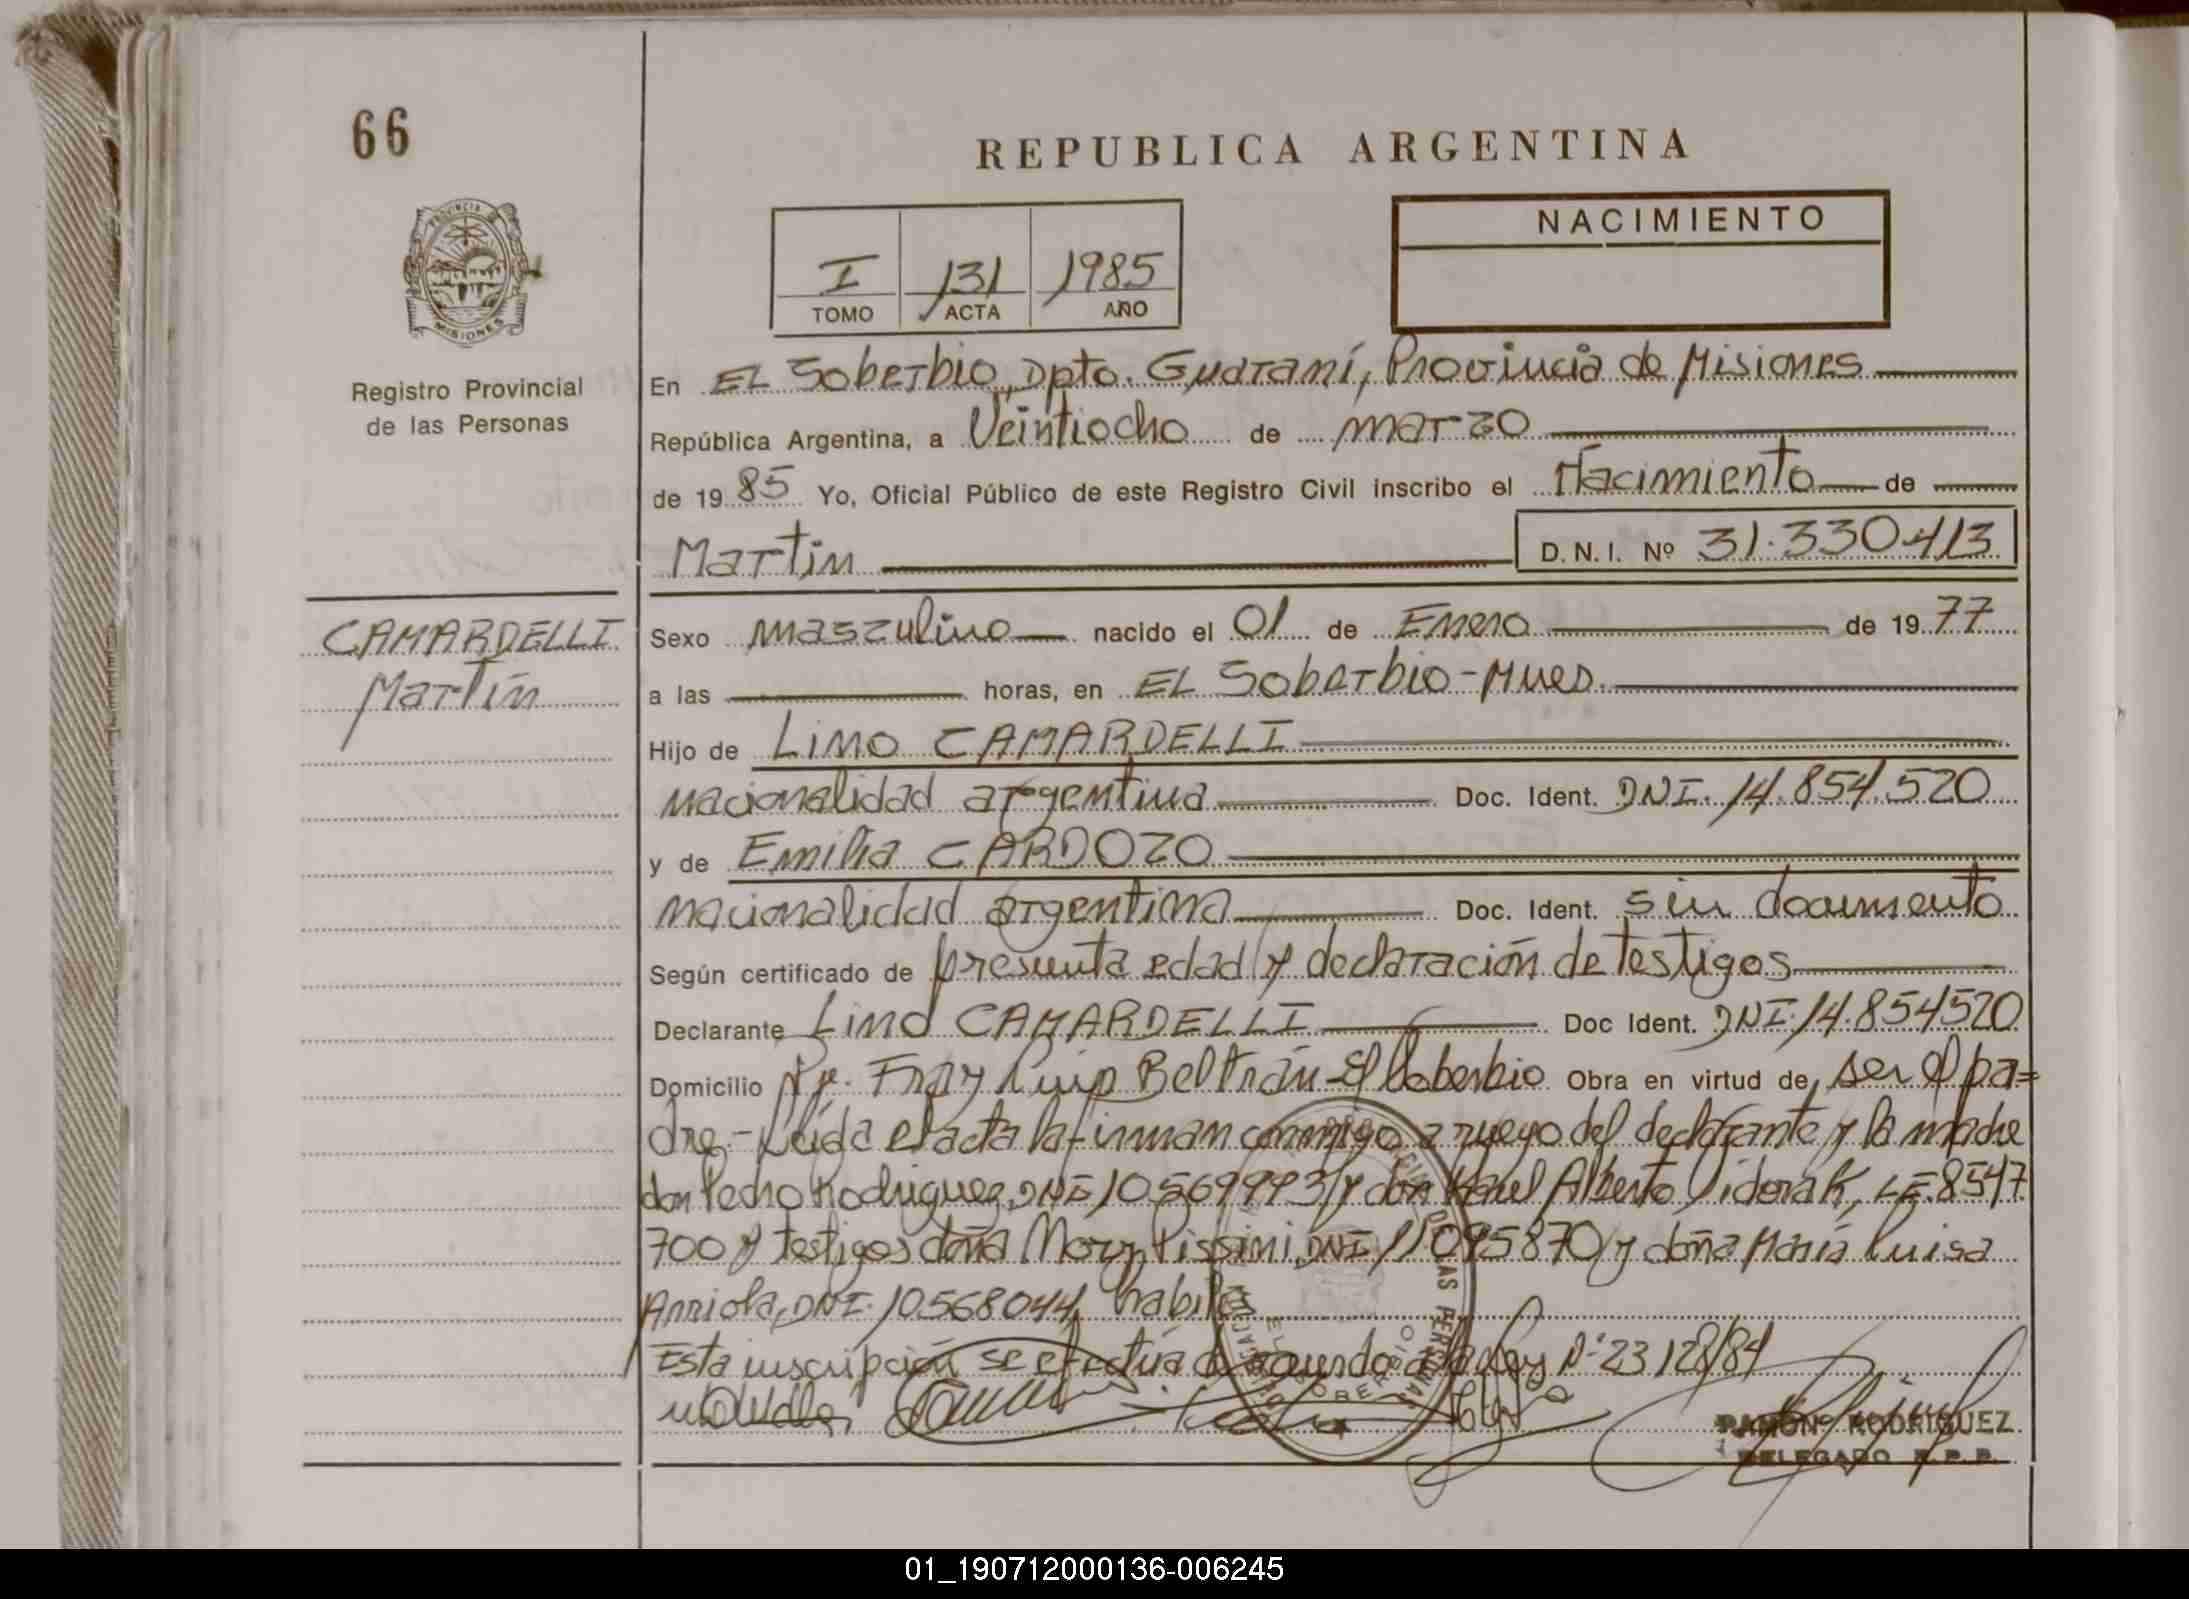 66
REPUBLICA ARGENTINA
PROVINCIA DE
MISIONES
Registro Provincial
de las Personas
I 131 1985
TOMO ACTA AÑO
NACIMIENTO
En EL Soberbio, Dpto. Guaraní, Provincia de Misiones
República Argentina, a Veintiocho de marzo
de 1985 Yo, Oficial Público de este Registro Civil inscribo el Nacimiento de
Martín D.N.I. Nº 31.330.413
CAMARDELLI
Martín
Sexo masculino nacido el 01 de Enero de 1977
a las horas, en EL Soberbio-Mnes.
Hijo de Lino CAMARDELLI
nacionalidad argentina Doc. Ident. DNI. 14.854.520
y de Emilia CARDOZO
nacionalidad argentina Doc. Ident. sin documento
Según certificado de presunta edad y declaración de testigos
Declarante Lino CAMARDELLI Doc Ident. DNI. 14.854520
Domicilio Fray Luis Beltrán-El Soberbio Obra en virtud de ser el pa=
dre.- Leída el acta la firman conmigo a ruego del declarante y la madre
don Pedro Rodriguez, DNI 10569993 y don Alberto LE.8547
700 y testigos doña Mary Pissini DNI 11095870 y doña María Luisa
Arriola, DNI. 10568044, habiles
Esta inscripción se efectúa de acuerdo a la Ley Nº 23128/84
RAMON RODRIGUEZ
DELEGADO R.P.P.
01_190712000136-006245